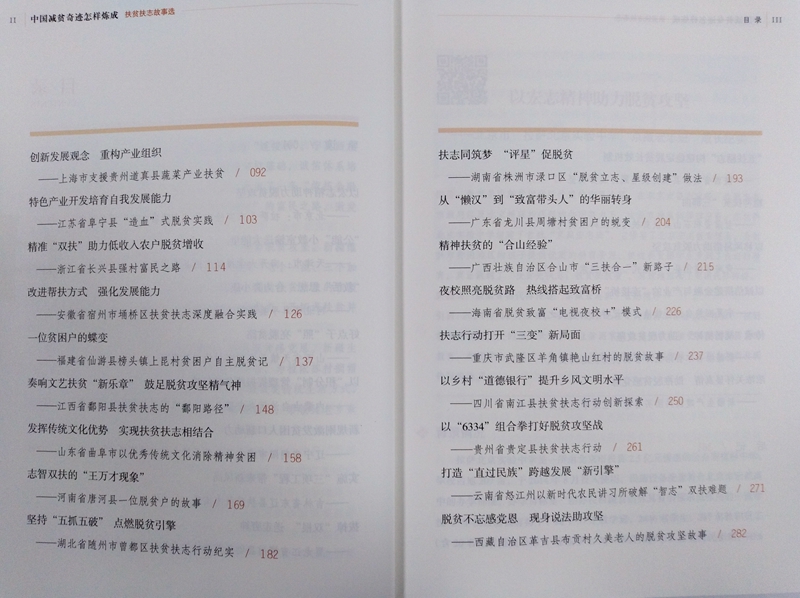 II 中国减贫奇迹怎样炼成 扶贫扶志故事选
创新发展观念 重构产业组织
——上海市支援贵州道真县蔬菜产业扶贫 / 092
特色产业开发培育自我发展能力
——江苏省阜宁县“造血”式脱贫实践 / 103
精准“双扶”助力低收入农户脱贫增收
——浙江省长兴县强村富民之路 / 114
改进帮扶方式 强化发展能力
——安徽省宿州市埇桥区扶贫扶志深度融合实践 / 126
一位贫困户的蝶变
——福建省仙游县榜头镇上昆村贫困户自主脱贫记 / 137
奏响文艺扶贫“新乐章” 鼓足脱贫攻坚精气神
——江西省鄱阳县扶贫扶志的“鄱阳路径” / 148
发挥传统文化优势 实现扶贫扶志相结合
——山东省曲阜市以优秀传统文化消除精神贫困 / 158
志智双扶的“王万才现象”
——河南省唐河县一位脱贫户的故事 / 169
坚持“五抓五破” 点燃脱贫引擎
——湖北省随州市曾都区扶贫扶志行动纪实 / 182
目 录 III
扶志同筑梦 “评星”促脱贫
——湖南省株洲市渌口区“脱贫立志、星级创建”做法 / 193
从“懒汉”到“致富带头人”的华丽转身
——广东省龙川县周塘村贫困户的蜕变 / 204
精神扶贫的“合山经验”
——广西壮族自治区合山市“三扶合一”新路子 / 215
夜校照亮脱贫路 热线搭起致富桥
——海南省脱贫致富“电视夜校+”模式 / 226
扶志行动打开“三变”新局面
——重庆市武隆区羊角镇艳山红村的脱贫故事 / 237
以乡村“道德银行”提升乡风文明水平
——四川省南江县扶贫扶志行动创新探索 / 250
以“6334”组合拳打好脱贫攻坚战
——贵州省贵定县扶贫扶志行动 / 261
打造“直过民族”跨越发展“新引擎”
——云南省怒江州以新时代农民讲习所破解“智志”双扶难题 / 271
脱贫不忘感党恩 现身说法助攻坚
——西藏自治区革吉县布贡村久美老人的脱贫攻坚故事 / 282